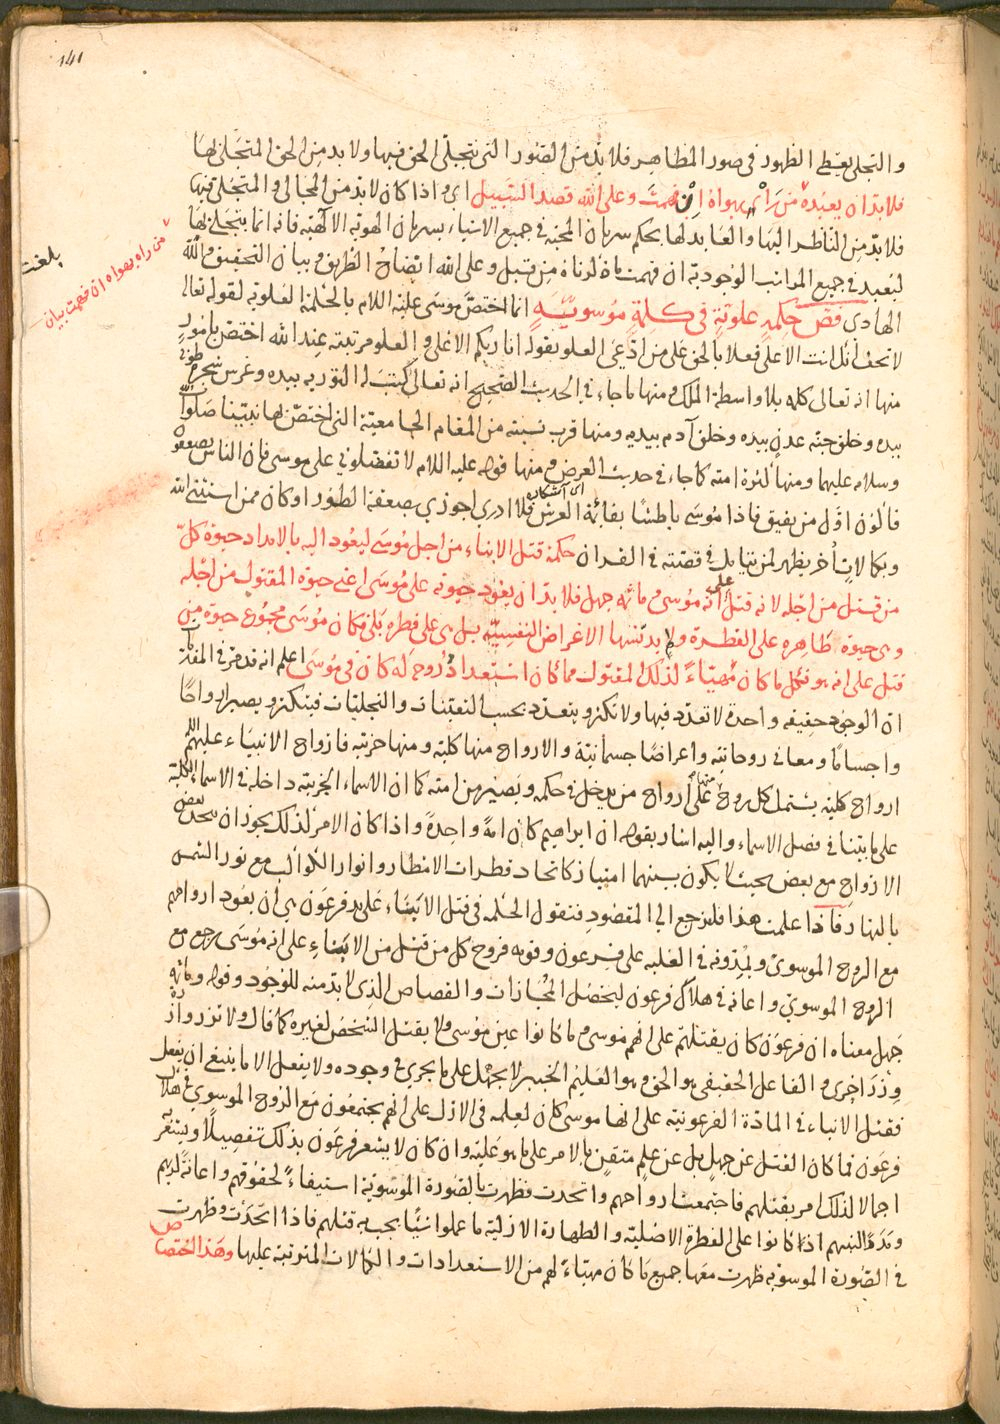 ١٤١
والتجلى يعطى الظهور فى صور المظاهر فلا بد من الصور التى يتجلى الحق فيها ولا بد من الحق المتجلى لها
فلا بد ان يعبده من رأى بهواه ان فهمت وعلى الله قصد السبيل اى واذا كان لا بد من المجالى والمتجلى فيها
فلا بد من الناظر اليها والعابد لها بحكم سريان المحبة فى جميع الاشياء بسريان الهوية الالهية فانه انما يتجلى لها
ليعبد فى جميع المراتب الوجودية ان فهمت ما ذكرناه من قبل وعلى الله ايضاح الطريق وبيان التحقيق والله
الهادى فص حكمة علوية فى كلمة موسوية انما اختص موسى عليه السلام بالحكمة العلوية لقوله تعالى
لا تخف انك انت الاعلى فعلا بالحق على من ادعى العلو بقوله انا ربكم الاعلى والعلو مرتبته عند الله اختص بامور
منها انه تعالى كلمه بلا واسطة الملك ومنها ما جاء فى الحديث الصحيح انه تعالى كتب له التورية بيده وغرس شجرة طوبى
بيده وخلق جنة عدن بيده وخلق آدم بيديه ومنها قرب نسبته من المقام الجامعية التى اختص بها نبينا صلوات الله
وسلامه عليهما ومنها كثرة امته كما جاء فى حديث العرض ومنها قوله عليه السلام لا تفضلونى على موسى فان الناس يصعقون
فاكون اول من يفيق فاذا موسى باطشا بقائمة العرش فلا ادرى اجوزى بصعقة الطور او كان ممن استثنى الله
وبكمالات أخر يظهر لمن يتأمل فى قصته فى القران حكمة قتل الابناء من اجل موسى ليعود اليه بالامداد حيوة كل
من قتل من اجله لانه قتل على انه موسى وما ثم جهل فلا بد ان يعود حيوته على موسى اعنى حيوة المقتول من اجله
وهى حيوة ظاهرة على الفطرة ولم يدنسها الاغراض النفسية بل هى على فطرة بلى فكان موسى مجموع حيوة من
قتل على انه هو فكل ما كان مهيئاً لذلك المقتول مما كان استعداد روحه له كان فى موسى اعلم انه قد مر فى المقدمات
ان الوجود حقيقة واحدة لا تعدد فيها ولا تكثر ويتعدد بحسب التعينات والتجليات فيتكثر ويصير ارواحا
واجساما ومعانى روحانية واعراضا جسمانية والارواح منها كلية ومنها جزئية فارواح الانبياء عليهم السلام
ارواح كلية يشتمل كل روح منها على ارواح من يدخل فى حكمه ويصير من امته كما ان الاسماء الجزئية داخلة فى الاسماء الكلية
على ما بينا فى فصل الاسماء واليه اشار بقوله ان ابراهيم كان امة واحدة واذا كان الامر كذلك يجوز ان يتحد بعض
الارواح مع بعض بحيث لا يكون بينهما امتياز كاتحاد قطرات الامطار وانوار الكواكب مع نور الشمس
بالنهار فاذا علمت هذا فلنرجع الى المقصود فنقول الحكمة فى قتل الابناء على يد فرعون هى أن يعود ارواحهم
مع الروح الموسوى ويمدونه فى الغلبة على فرعون وقومه فروح كل من قتل من الابناء على انه موسى رجع مع
الروح الموسوى واعانه فى هلاك فرعون ليحصل المجازات والقصاص الذى لا بد منه للوجود وقوله وما ثم
جهل معناه ان فرعون كان يقتلهم على انهم موسى وما كانوا عين موسى ولا يقتل الشخص لغيره كما قال ولا تزر وازرة
وزر اخرى والفاعل الحقيقى هو الحق وهو العليم الخبير لا يجهل على ما يجرى فى وجوده ولا يفعل الا ما ينبغى ان يفعل
فقتل الابناء فى المادة الفرعونية على انها موسى كان لعلمه فى الازل على انهم يجتمعون مع الروح الموسوى فى هلاك
فرعون فما كان القتل عن جهل بل عن علم متقن بالامر على ما هو عليه وان كان لا يشعر فرعون بذلك تفصيلا ويشعر به
اجمالا لذلك امر بقتلهم فاجتمعت ارواحهم واتحدت فظهرت بالصورة الموسوية استيفاء لحقوقهم واعانة لربهم
اذا كانوا على الفطرة الاصلية والطهارة الازلية ما عملوا شيئا يجب به قتلهم فاذا اتحدت وظهرت
فى الصورة الموسوية ظهرت معها جميع ما كان مهيئاً لهم من الاستعدادات والكمالات المترتبة عليها وهذا اختصاص
اى آشكاره
من راه بهواه ان فهمت بيان
بلغت